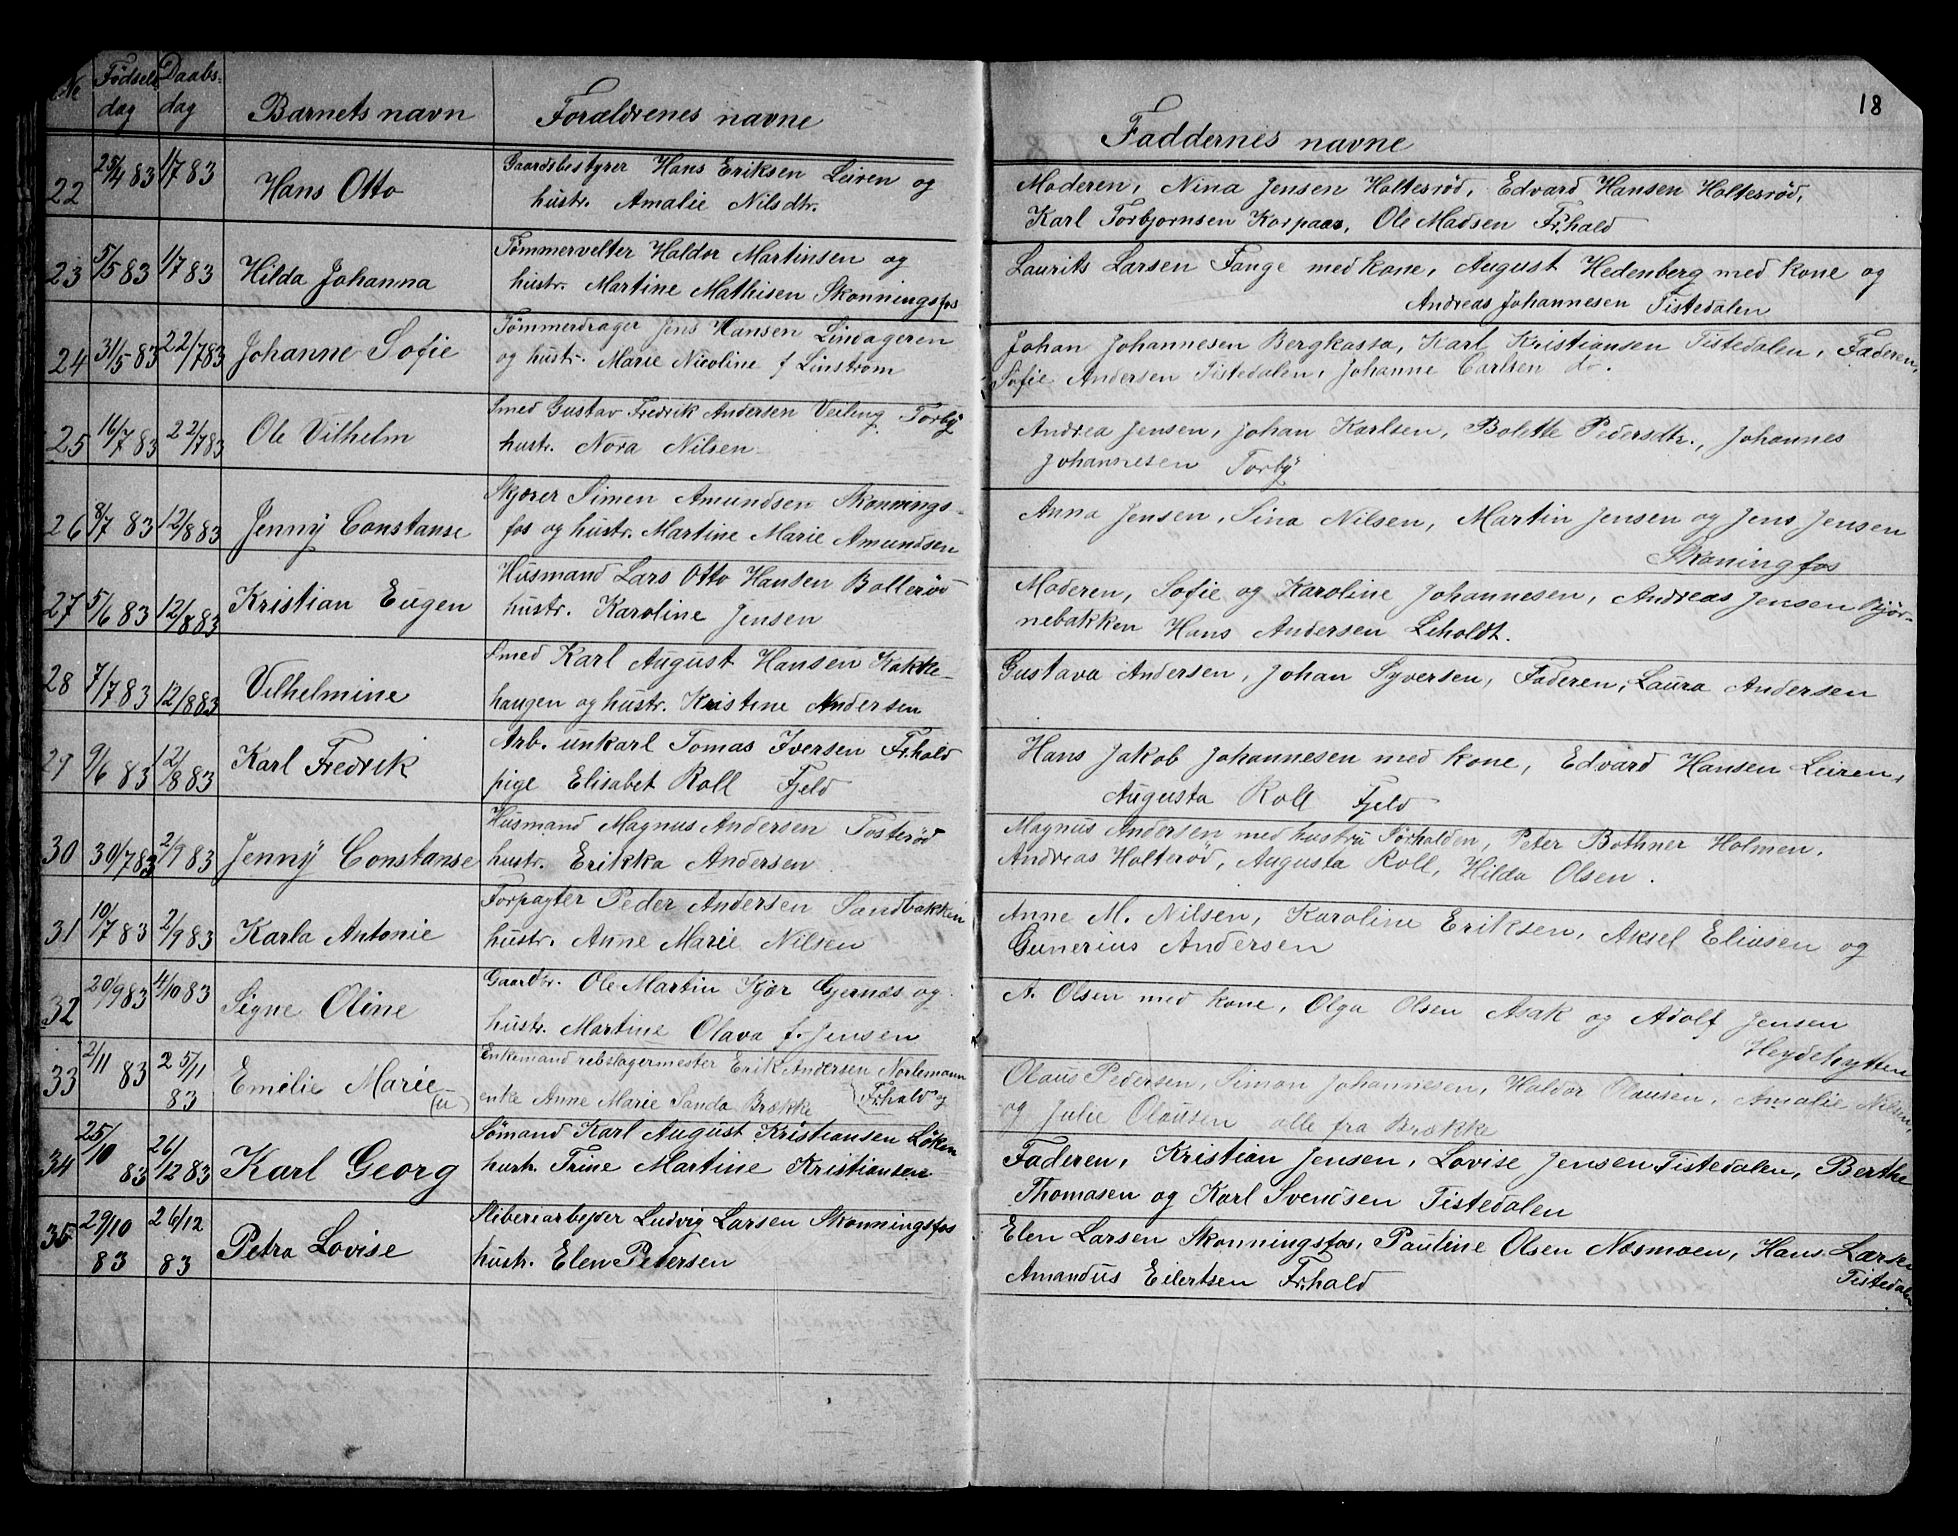 18
No Fødsels Daabs-
dag dag Barnets navn Forældrenes navne Faddernes navne
22 25/4 83 1/7 83 Hans Otto Gaardsbestyrer Hans Eriksen Leiren og
hustr. Amalie Nilsdtr.
Moderen, Nina Jensen Holtesrød, Edvard Hansen Holtesrød,
Karl Torbjornsen Korpaas, Ole Madsen Fr.hald
23 5/5 83 1/7 83 Hilda Johanna Tømmervelter Haldor Martinsen og
hustr. Martine Mathisen Skonningsfos
Laurits Larsen Fange med kone, August Hedenberg med kone og
Andreas Johannesen Tistedalen
24 31/5 83 22/7 83 Johanne Sofie Tømmerdrager Jens Hansen Lindageren
og hustr. Marie Nicoline f Linstrøm
Johan Johannesen Bergkasa, Karl Kristiansen Tistedalen, Faderen,
Sofie Andersen Tistedalen, Johanne Carlsen do.
25 16/7 83 22/7 83 Ole Vilhelm Smed Gustav Fredrik Andersen Veiling Torby
hustr. Nora Nilsen
Andrea Jensen, Johan Karlsen, Bolette Pedersdtr., Johannes
Johannesen Torby
26 8/7 83 12/8 83 Jenny Constanse Skjærer Simen Amundsen Skonnings-
fos og hustr. Martine Marie Amundsen
Anna Jensen, Sina Nilsen, Martin Jensen og Jens Jensen
Skoningfos
27 5/6 83 12/8 83 Kristian Eugen Husmand Lars Otto Hansen Bollerød
hustr. Karoline Jensen
Moderen, Sofie og Karoline Johannesen, Andreas Jensen Bjør-
nebakken Hans Andersen Liholdt.
28 7/7 83 12/8 83 Vilhelmine Smed Karl August Hansen Kakke-
haugen og hustr. Kristine Andersen
Gustava Andersen, Johan Syversen, Faderen, Laura Andersen
29 9/6 83 12/8 83 Karl Fredrik Arb. unkarl Tomas Iversen Fr.hald
pige Elisabet Roll Fjeld
Hans Jakob Johannesen med kone, Edvard Hansen Leiren,
Augusta Roll Fjeld
30 30/7 83 2/9 83 Jenny Constanse Husmand Magnus Andersen Tosterød
hustr. Erikka Andersen
Magnus Andersen med hustru Torhalden, Peter Bothner Holmen.
Andreas Holterød, Augusta Roll, Hilda Olsen.
31 10/7 83 2/9 83 Karla Antonie Forpagter Peder Andersen Sandbakken
hustr. Anne Marie Nilsen
Anne M. Nilsen, Karoline Eriksen, Aksel Eliasen og
Gunerius Andersen
32 20/9 83 4/10 83 Signe Oline Gaardbr. Ole Martin Kjør Gjernæs og
hustr. Martine Olava f. Jensen
A. Olsen med kone, Olga Olsen Asak og Adolf Jensen
Heydehytten
33 2/11 83 25/11 83 Emilie Marie (u) Enkemand rebslagermester Erik Andersen Norlemann
enke Anne Marie Sanda Brække Fr.hald og
Olaus Pedersen, Simon Johannesen, Haldor Olausen, Amalie Nilsen,
og Julie Olausen alle fra Brække
34 25/10 83 26/12 83 Karl Georg Sømand Karl August Kristiansen Løken
hustr. Trine Martine Kristiansen
Faderen, Kristian Jensen, Lovise Jensen Tistedalen, Berthe
Thomasen og Karl Svendsen Tistedalen
35 29/10 83 26/12 83 Petra Lovise Sliberiarbejder Ludvig Larsen Skonningsfos
hustr. Elen Petersen
Elen Larsen Skonningsfos, Pauline Olsen Næsmoen, Hans Larsen
Amandus Eilertsen Fr.hald Tistedalen